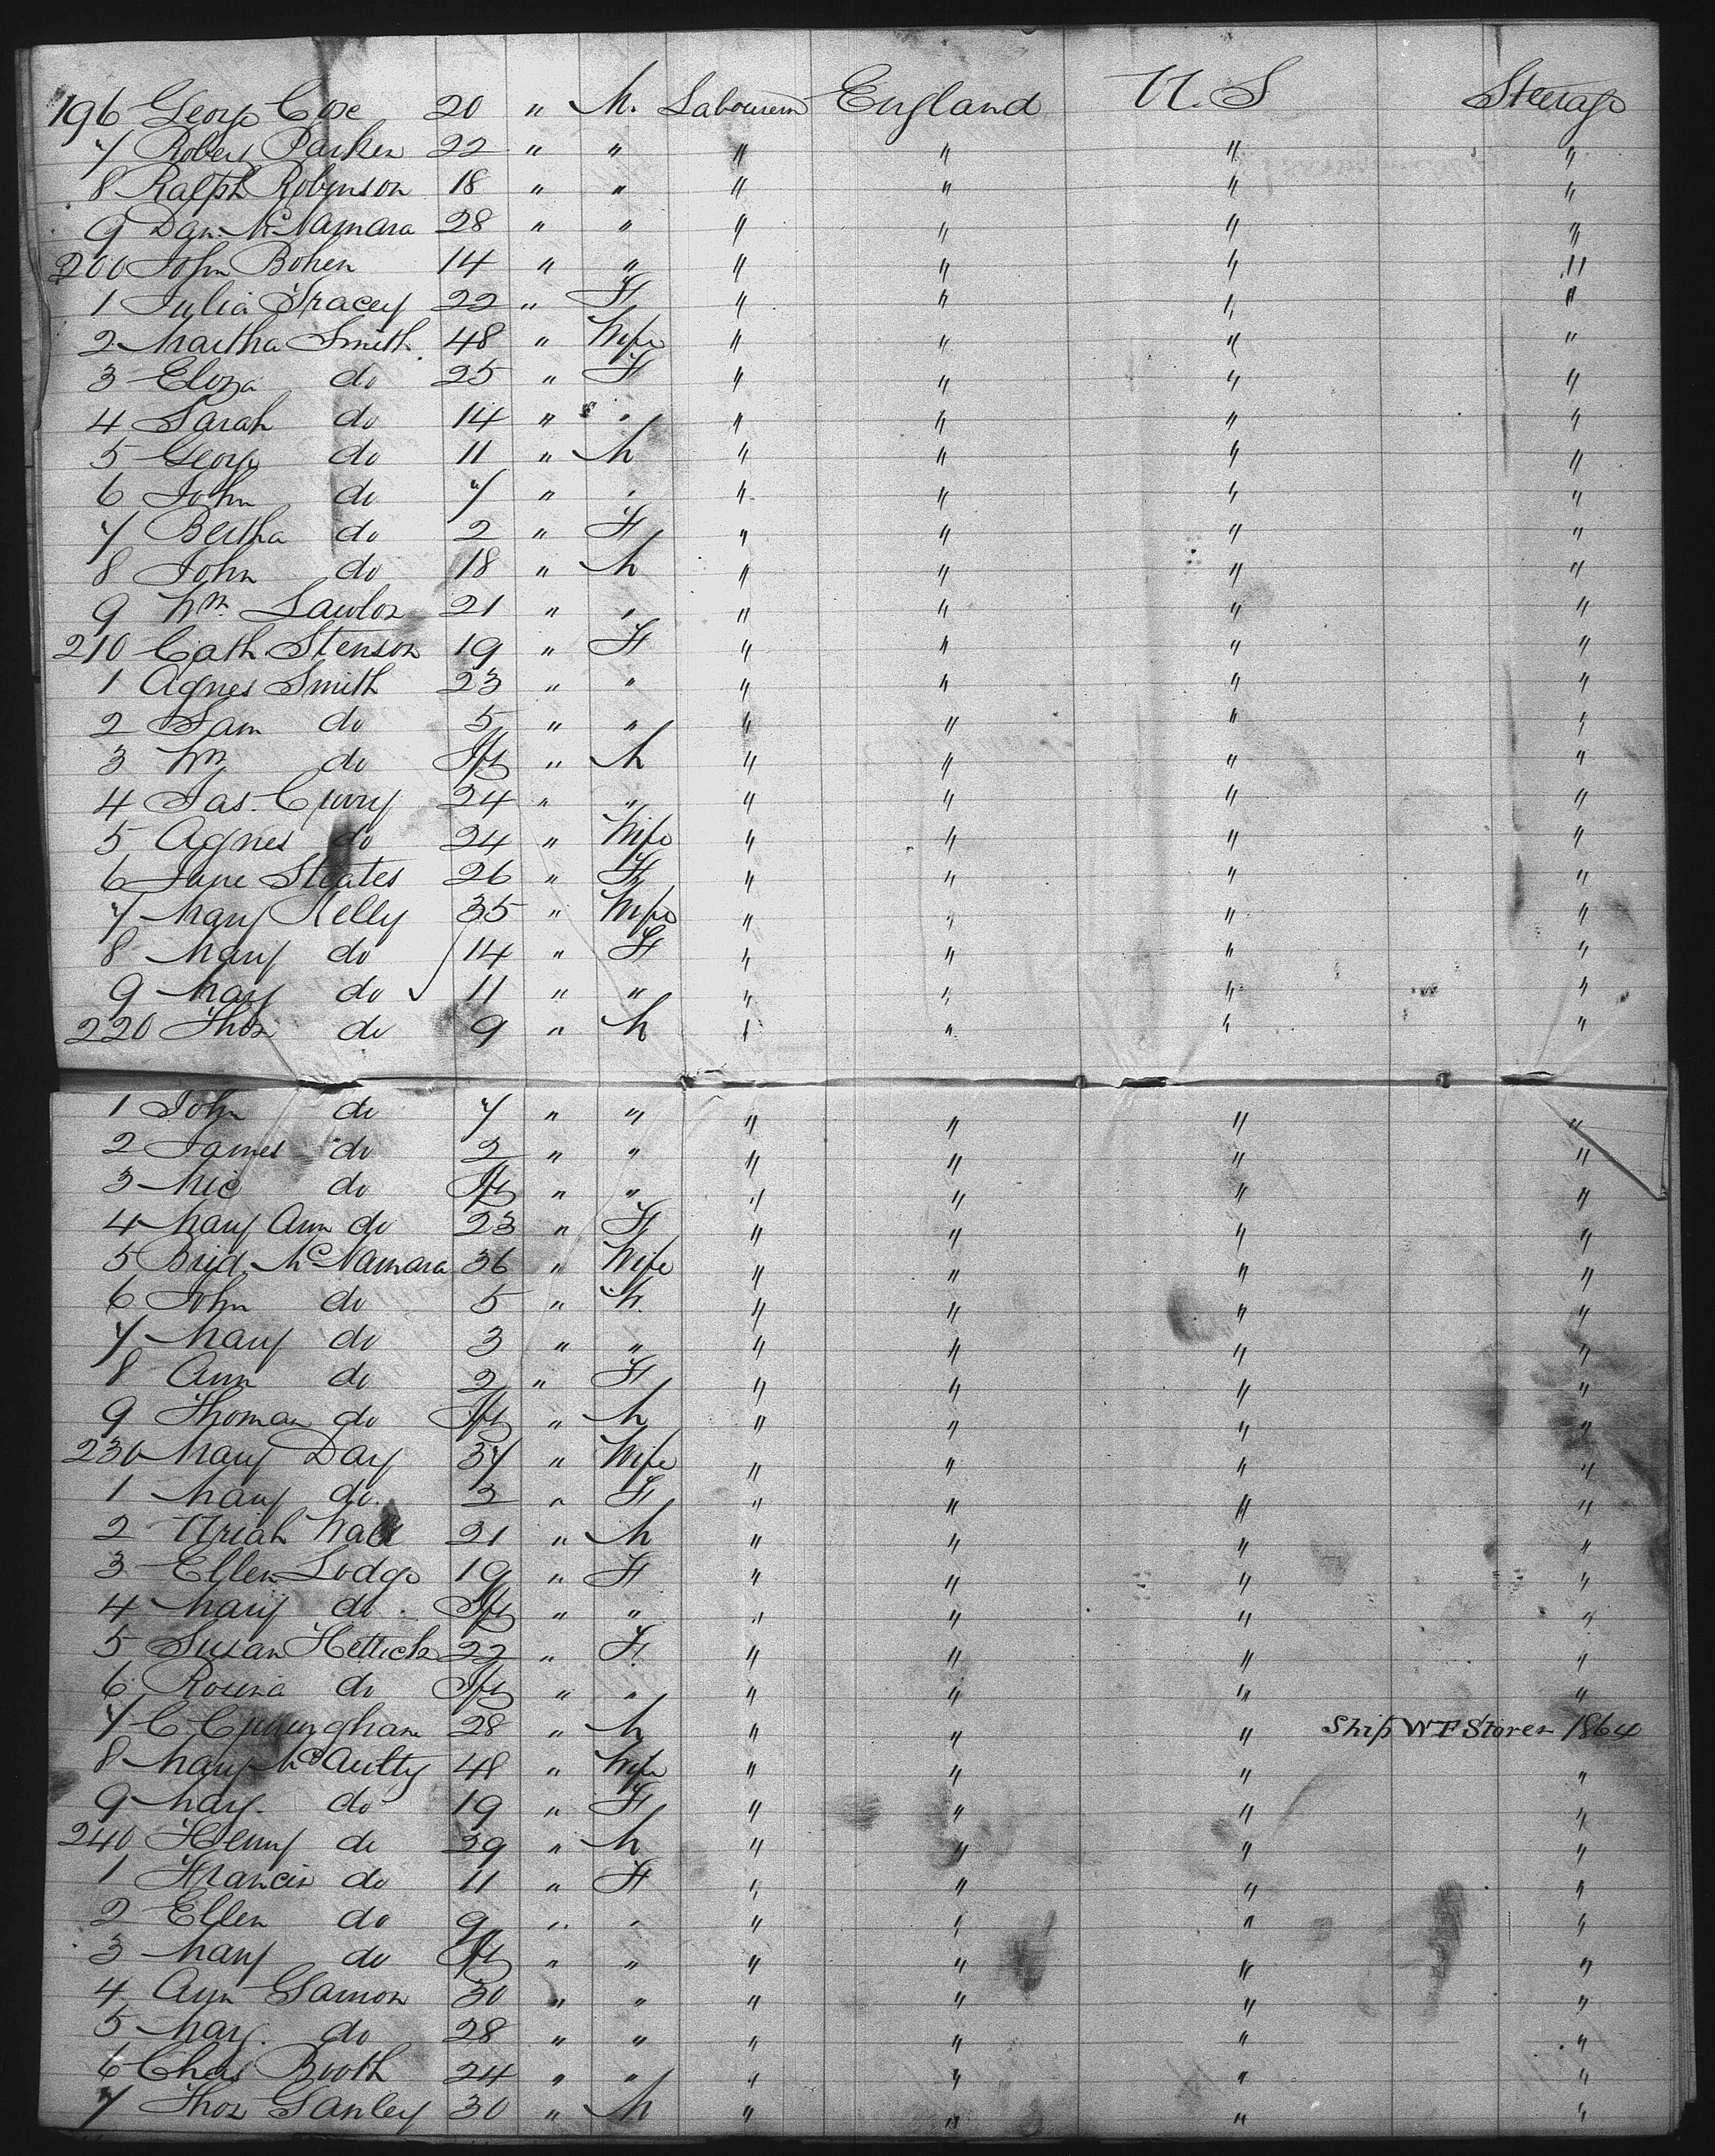 196 George Coxe 20 " M. Labourern England U.S Steerage
7 Robert Parker 22 " " " " " "
8 Ralph Robinson 18 " " " " " "
9 Dan. McNamara 28 " " " " " "
200 John Bohen 14 " " " " " "
1 Julia Tracey 22 " F " " " "
2 Martha Smith 48 " Wife " " " "
3 Eliza do 25 " F " " " "
4 Sarah do 14 " " " " " "
5 George do 11 " M " " " "
6 John do 7 " " " " " "
7 Bertha do 2 " F " " " "
8 John do 18 " M " " " "
9 Wm. Lawlor 21 " " " " " "
210 Cath Stenson 19 " F " " " "
1 Agnes Smith 23 " " " " " "
2 Sam do 5 " " " " " "
3 Wm do Inft " M " " " "
4 Jas. Curry 24 " " " " " "
5 Agnes do 24 " Wife " " " "
6 Jane Steates 26 " F " " " "
7 Mary Kelly 35 " Wife " " " "
8 Mary do 14 " F " " " "
9 May do 11 " " " " " "
220 Thos do 9 " M " " " "
1 John do 7 " " " " " "
2 James do 2 " " " " " "
3 Mic do Inft " " " " " "
4 Mary Ann do 23 " F " " " "
5 Brid. McNamara 36 " Wife " " " "
6 John do 5 " M. " " " "
7 Mary do 3 " " " " " "
8 Ann do 2 " F " " " "
9 Thomas do Inft " M " " " "
230 Mary Day 37 " Wife " " " "
1 Mary do. 3 " F " " " "
2 Uriah Wall 21 " M " " " "
3 Ellen Lodge 19 " F " " " "
4 Mary do. Inft " " " " " "
5 Susan Hettick 22 " F. " " " "
6 Rosina do Inft " " " " " "
7 C. Cunningham 28 " M " " " Ship W F Storer 1864
8 Mary McAulty 48 " Wife " " " "
9 May. do 19 " F " " " "
240 Henry do 39 " M " " " "
1 Francis do 11 " F " " " "
2 Ellen do 9 " " " " " "
3 Mary do Inft " " " " " "
4 Ann Gamon 30 " " " " " "
5 May. do 28 " " " " " "
6 Chas Booth 24 " " " " " "
7 Thos Ganley 30 " M " " " "